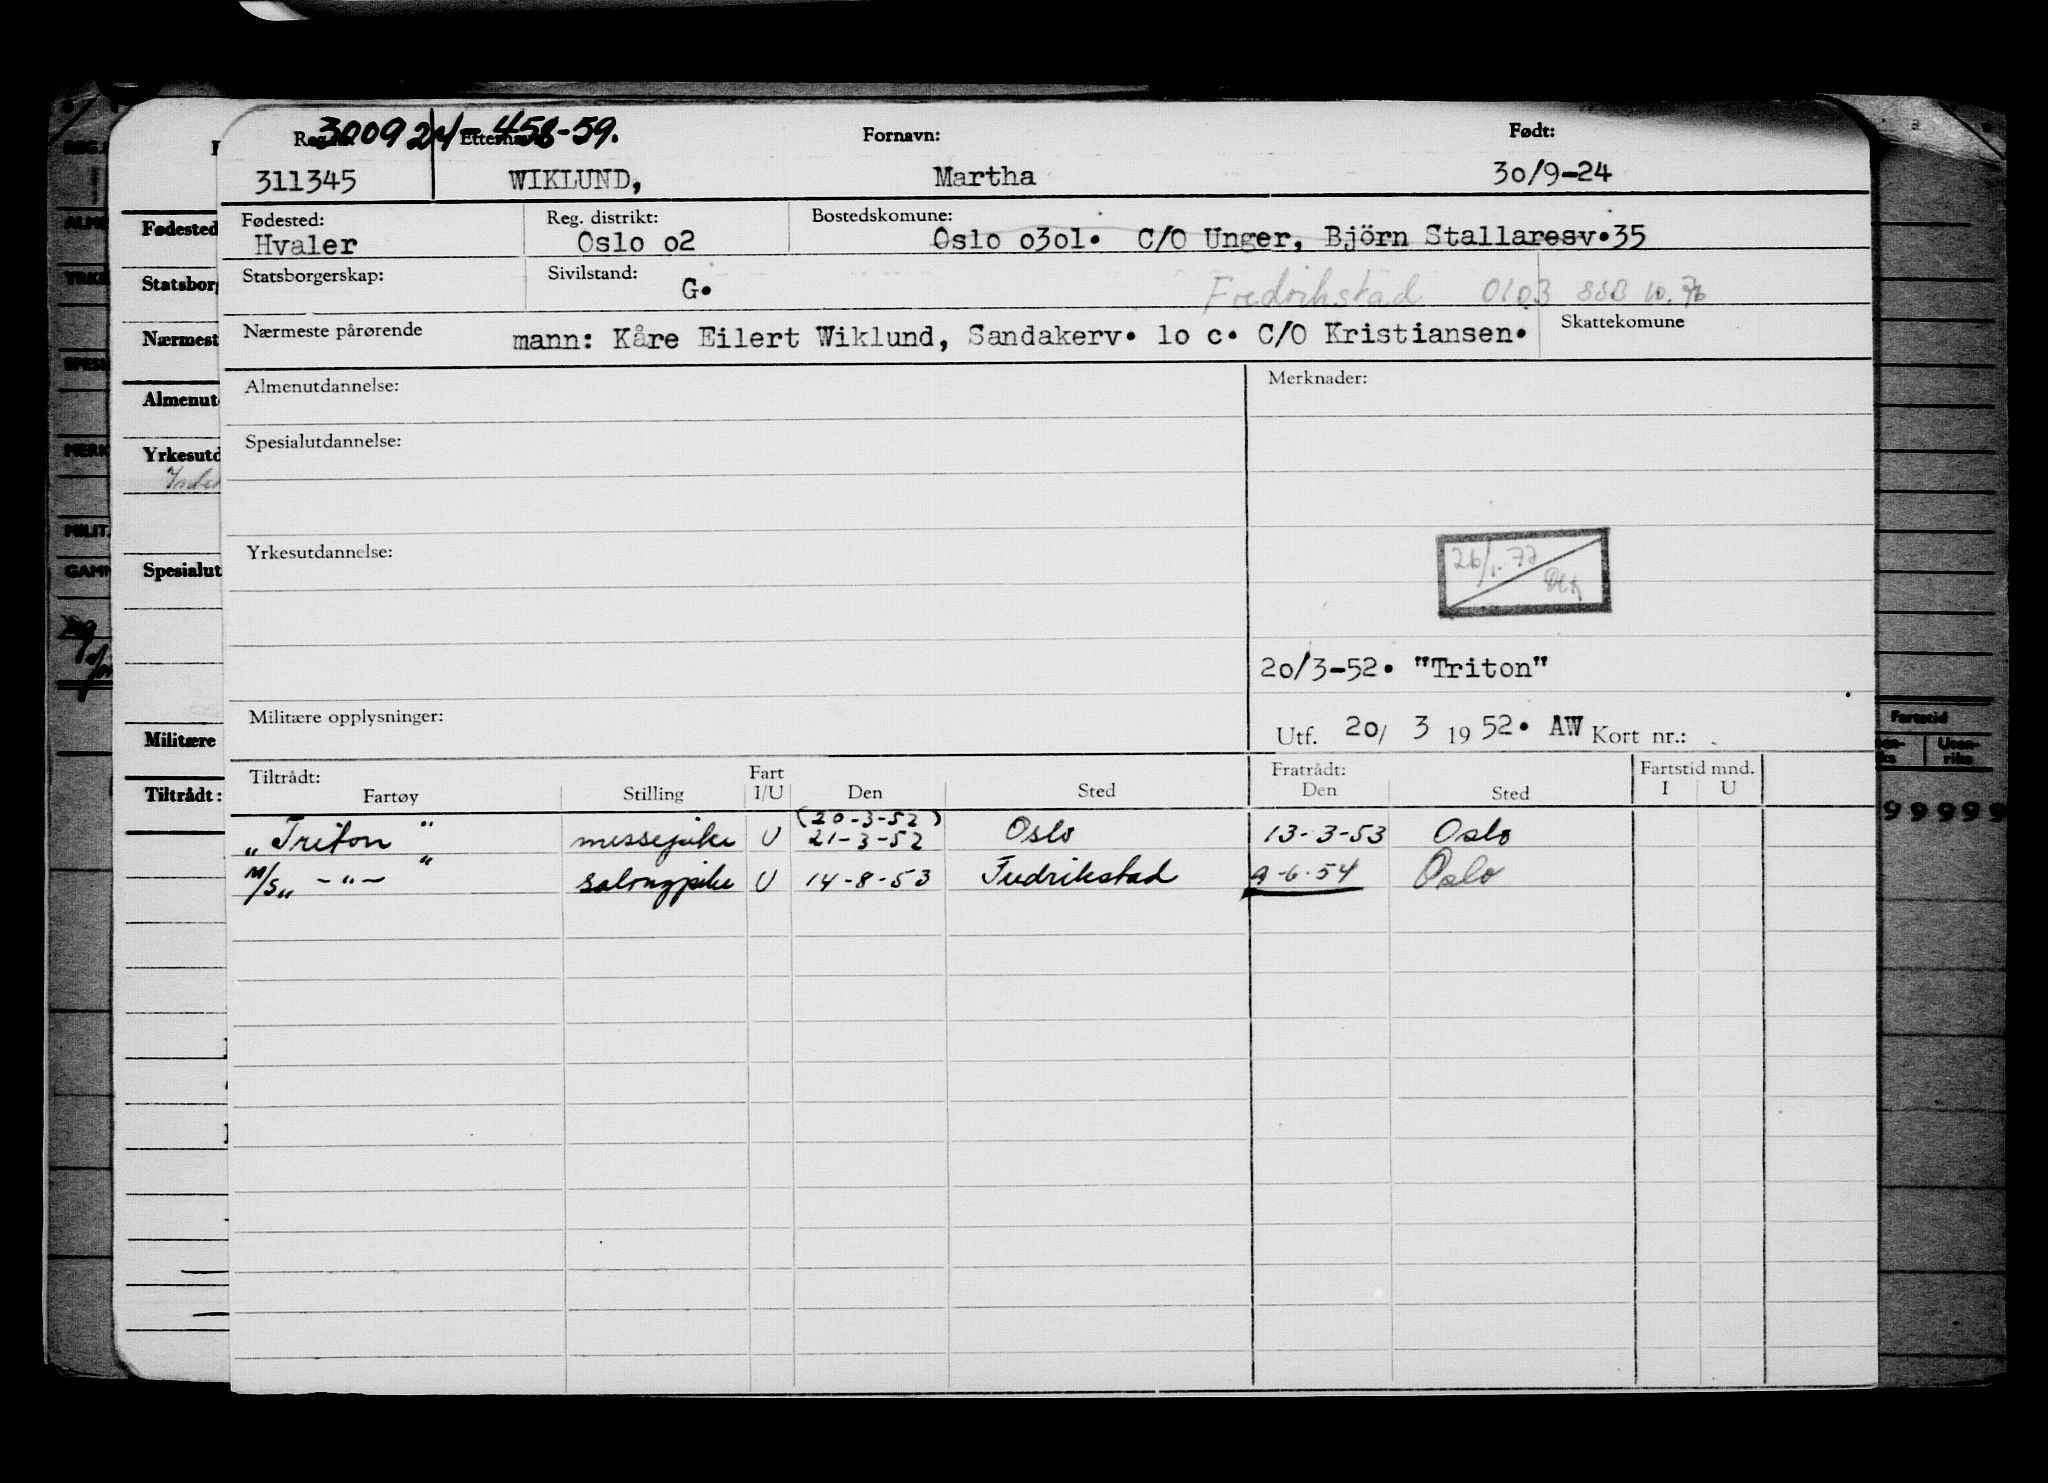 300924-458-59.
Reg.nr. Etternavn: Fornavn: Født:
311345 WIKLUND, Martha 30/9-24
Fødested: Reg. distrikt: Bostedskomune:
Hvaler Oslo o2 Oslo o3o1. C/O Unger, Björn Stallaresv.35
Statsborgerskap: Sivilstand: G. Fredrikstad 0103 SSB 10.76
Nærmeste pårørende mann: Kåre Eilert Wiklund, Sandakerv. 1o c. C/O Kristiansen. Skattekomune
Almenutdannelse: Merknader:
Spesialutdannelse:
Yrkesutdannelse:
26/1-77
20/3-52. "Triton"
Militære opplysninger: Utf. 20/ 3 1952. AW Kort nr.:
Tiltrådt: Fart Fratrådt: Fartstid mnd.
Fartøy Stilling I/U Den Sted Den Sted I U
(20-3-52)
"Triton" messepike U 21-3-52 Oslo 13-3-53 Oslo
M/S „ -"- " salongpike U 14-8-53 Fredrikstad 9-6-54 Oslo
Fødested
Statsborg
Nærmest
Almenut
Yrkesutd
Spesialut
Militære
Tiltrådt:
Fartstid
Uten-
riks
99999